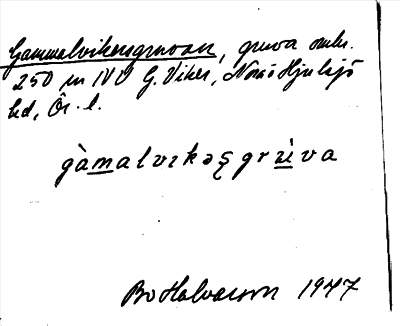 Gammalvikersgruvan, gruva omkr.
250 m NV G. Viker, Nora o Hjulsjö
bd, Ör. l.
gàmalvikəʂgrùva
Bo Halvarson 1947